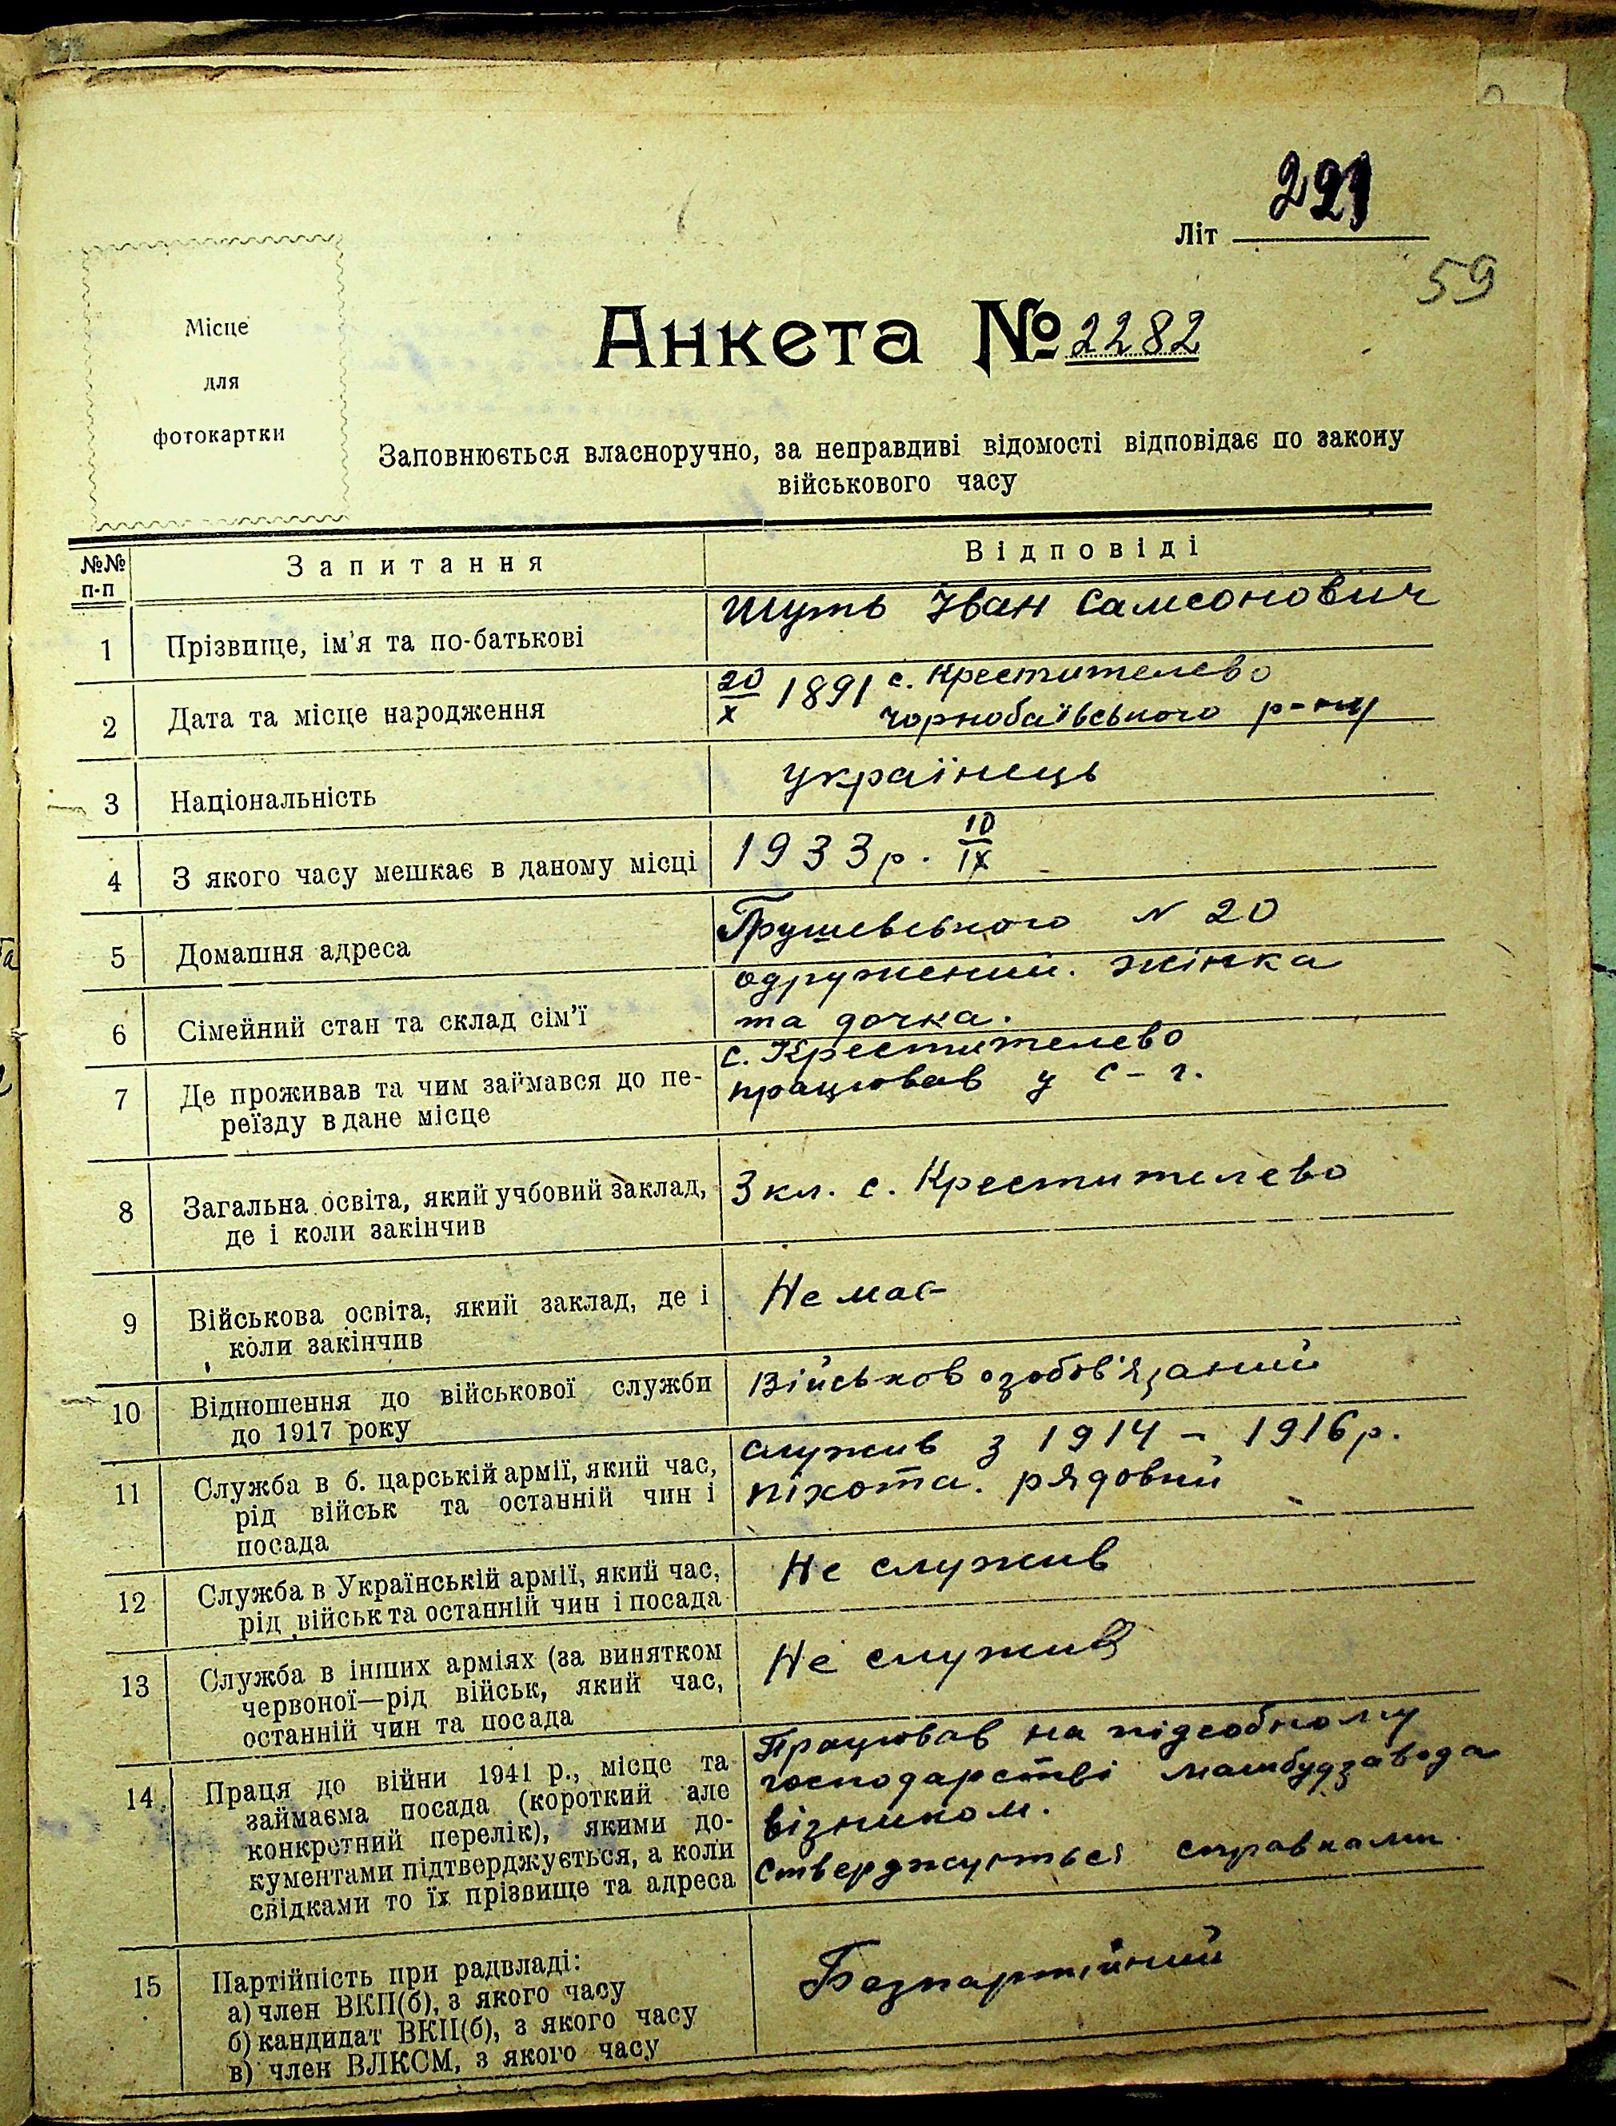 Літ 291
59
Місце
для
фотокартки
Анкета № 2282
Заповнюється власноручно, за неправдиві відомості відповідає по закону
військового часу
№№ п-п Запитання Відповіді
1 Прізвище, ім'я та по-батькові
Шуть Іван Самсонович
2 Дата та місце народження
20/X 1891 с. Крестителево
Чорнобаївського р-ну
3 Національність
українець
4 З якого часу мешкає в даному місці
1933 р. 10/IX
5 Домашня адреса
Грушевського N 20
6 Сімейний стан та склад сім'ї
одружений. жінка
та дочка.
7 Де проживав та чим займався до пе-
реїзду в дане місце
с. Крестителево
працював у с-г.
8 Загальна освіта, який учбовий заклад,
де і коли закінчив
3 кл. с. Крестителево
9 Військова освіта, який заклад, де і
коли закінчив
Не має
10 Відношення до військової служби
до 1917 року
Військовозобов'язаний
11 Служба в б. царській армії, який час,
рід військ та останній чин і
посада
служив з 1914 – 1916 р.
піхота. рядовий
12 Служба в Українській армії, який час,
рід військ та останній чин і посада
Не служив
13 Служба в інших арміях (за винятком
червоної—рід військ, який час,
останній чин та посада
Не служив
14 Праця до війни 1941 р., місце та
займаєма посада (короткий але
конкретний перелік), якими до-
кументами підтверджується, а коли
свідками то їх прізвище та адреса
Працював на підсобному
господарстві машбудзавода
візником.
Стверджується справками.
15 Партійність при радвладі:
а) член ВКП(б), з якого часу
б) кандидат ВКП(б), з якого часу
в) член ВЛКСМ, з якого часу
Безпартійний